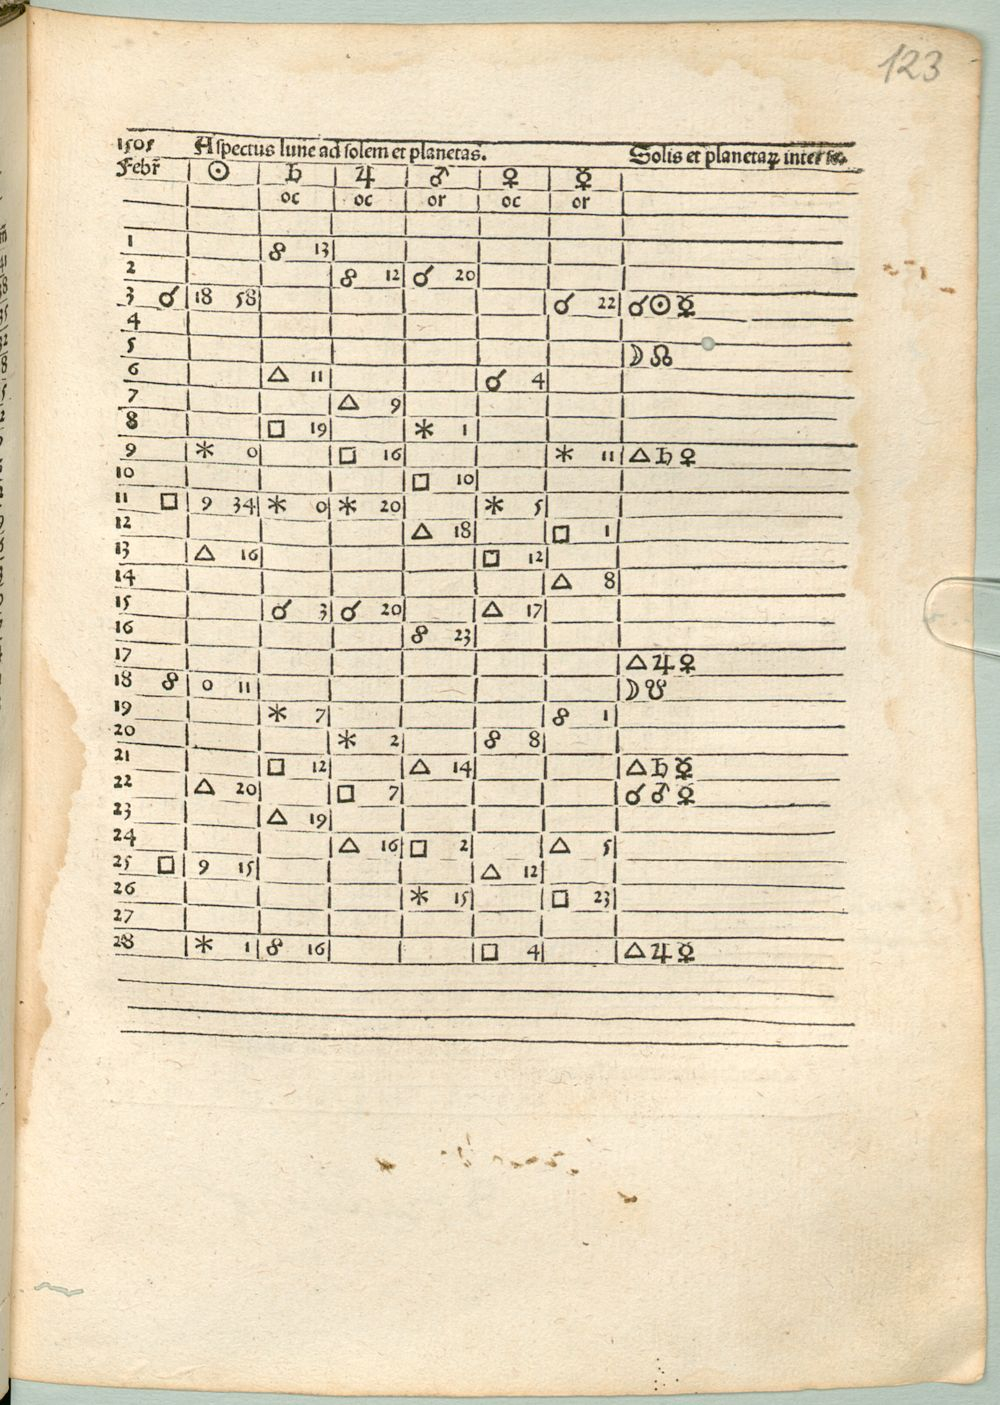 123
1505 Aspectus lune ad solem et planetas. Solis et planetaꝝ inter se
Febr̄ ☉ ♄ ♃ ♂ ♀ ☿
oc oc or oc or
1 ☍ 13
2 ☍ 12 ☌ 20
3 ☌ 18 58 ☌ 22 ☌ ☉ ☿
4
5 ☽ ☊
6 △ 11 ☌ 4
7 △ 9
8 □ 19 ⚹ 1
9 ⚹ 0 □ 16 ⚹ 11 △ ♄ ♀
10 □ 10
11 □ 9 34 ⚹ 0 ⚹ 20 ⚹ 5
12 △ 18 □ 1
13 △ 16 □ 12
14 △ 8
15 ☌ 3 ☌ 20 △ 17
16 ☍ 23
17 △ ♃ ♀
18 ☍ 0 11 ☽ ☋
19 ⚹ 7 ☍ 1
20 ⚹ 2 ☍ 8
21 □ 12 △ 14 △ ♄ ☿
22 △ 20 □ 7 ☌ ♂ ☿
23 △ 19
24 △ 16 □ 2 △ 5
25 □ 9 15 △ 12
26 ⚹ 15 □ 23
27
28 ⚹ 1 ☍ 16 □ 4 △ ♃ ☿